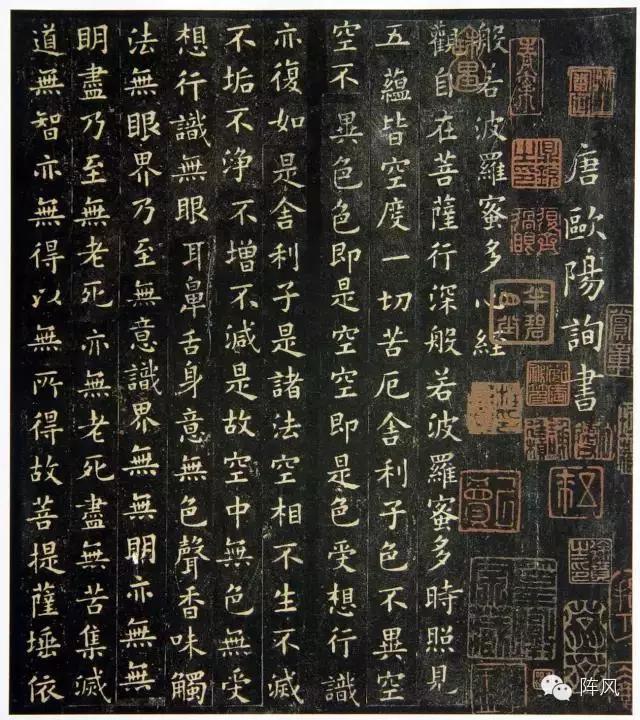 唐歐陽詢書
般若波羅蜜多心經
觀自在菩薩行深般若波羅蜜多時照見
五蘊皆空度一切苦厄舍利子色不異空
空不異色色即是空空即是色受想行識
亦復如是舍利子是諸法空相不生不滅
不垢不淨不增不減是故空中無色無受
想行識無眼耳鼻舌身意無色聲香味觸
法無眼界乃至無意識界無無明亦無無
明盡乃至無老死亦無老死盡無苦集滅
道無智亦無得以無所得故菩提薩埵依
阵风